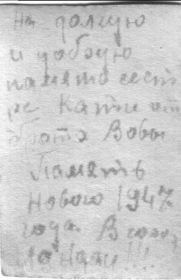 На долгую
и добрую
память сест
ре Кати от
брата Вовы
Память
Нового 1947
года В